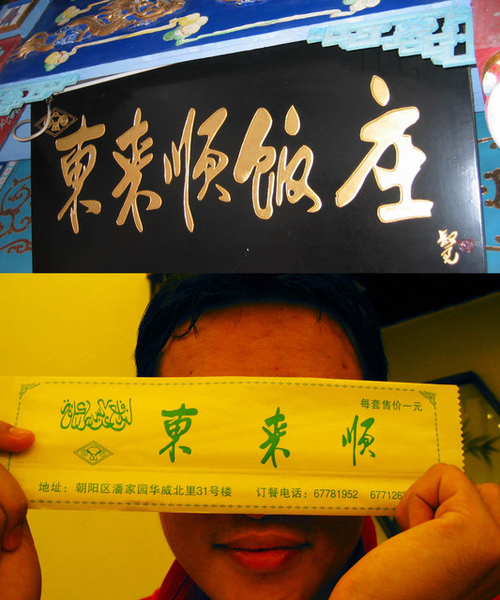 東来順飯庄
每套售价一元
東来順
地址：朝阳区潘家园华威北里31号楼 订餐电话：67781952 677126